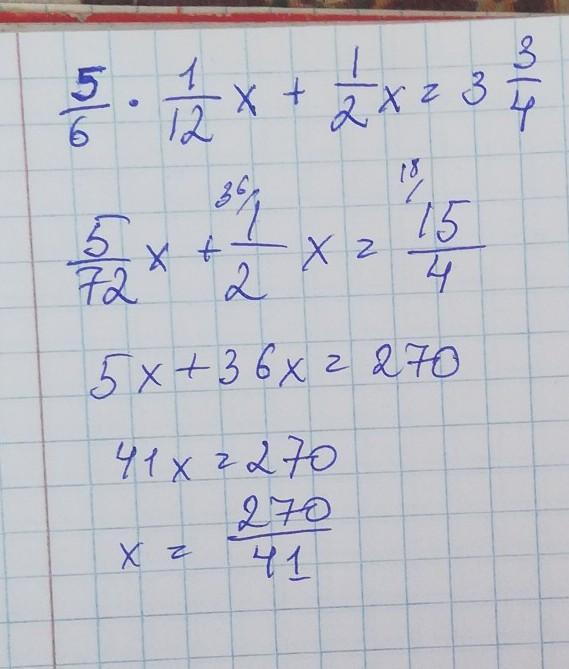 5/6 · 1/12 x + 1/2 x = 3 3/4
5/72 x + 36/ 1/2 x = 18/ 15/4
5x + 36x = 270
41x = 270
x = 270/41